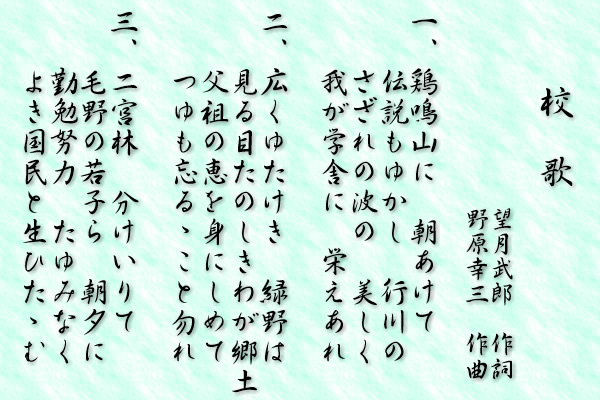 校歌
望月武郎 作詞
野原幸三 作曲
一、鶏鳴山に 朝あけて
伝説もゆかし 行川の
さざれの波の 美しく
我が学舎に 栄えあれ
二、広くゆたけき 緑野は
見る目たのしきわが郷土
父祖の恵を身にしめて
つゆも忘るゝこと勿れ
三、二宮林 分けいりて
毛野の若子ら 朝夕に
勤勉努力 たゆみなく
よき国民と生ひたゝむ